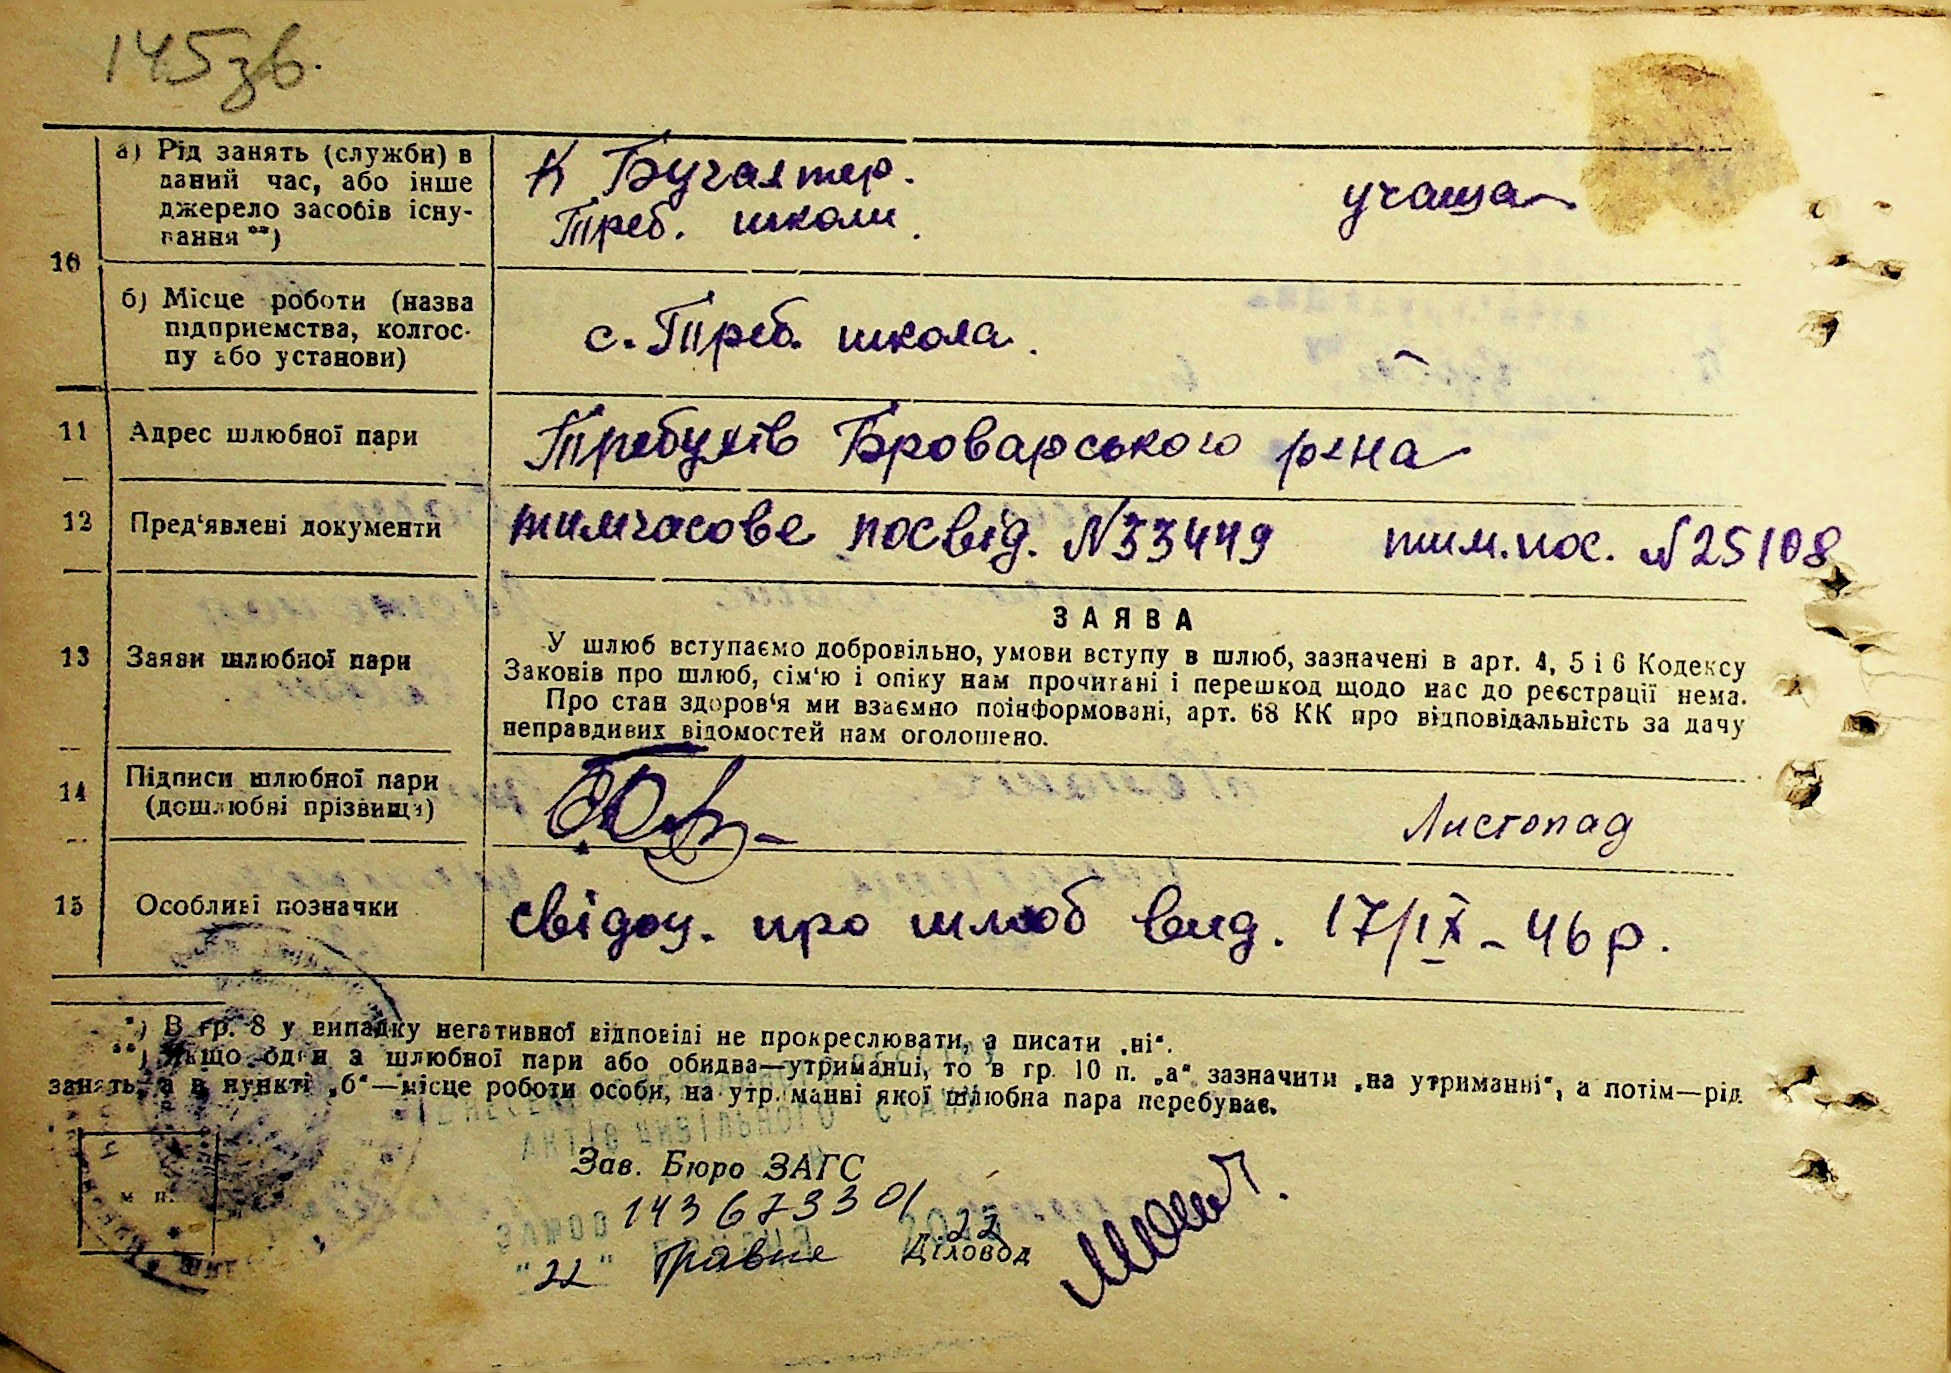 145зв.
а) Рід занять (служби) в
даний час, або інше
джерело засобів існу-
вання **)
К Бучгалтер.
Треб. школи.
учаща
10
б) Місце роботи (назва
підприємства, колгос-
пу або установи)
с. Треб. школа.
11 Адрес шлюбної пари Требухів Броварського р-на
12 Пред'явлені документи тимчасове посвід. N33449 тим.пос. N25108
ЗАЯВА
13 Заяви шлюбної пари
У шлюб вступаємо добровільно, умови вступу в шлюб, зазначені в арт. 4, 5 і 6 Кодексу
Законів про шлюб, сім'ю і опіку нам прочитані і перешкод щодо нас до реєстрації нема.
Про стан здоров'я ми взаємно поінформовані, арт. 68 КК про відповідальність за дачу
неправдивих відомостей нам оголошено.
14 Підписи шлюбної пари
(дошлюбні прізвища)
Листопад
15 Особливі позначки свідоц. про шлюб вид. 17/IX-46р.
*) В гр. 8 у випадку негативної відповіді не прокреслювати, а писати „ні“.
**) Якщо один з шлюбної пари або обидва—утриманці, то в гр. 10 п. „а“ зазначити „на утриманні“, а потім—рід
занять, а в пункті „б“—місце роботи особи, на утриманні якої шлюбна пара перебуває.
АКТІВ ЦИВІЛЬНОГО СТАНУ
Зав. Бюро ЗАГС
м. п.
143673301
"22" травня 22
Діловод